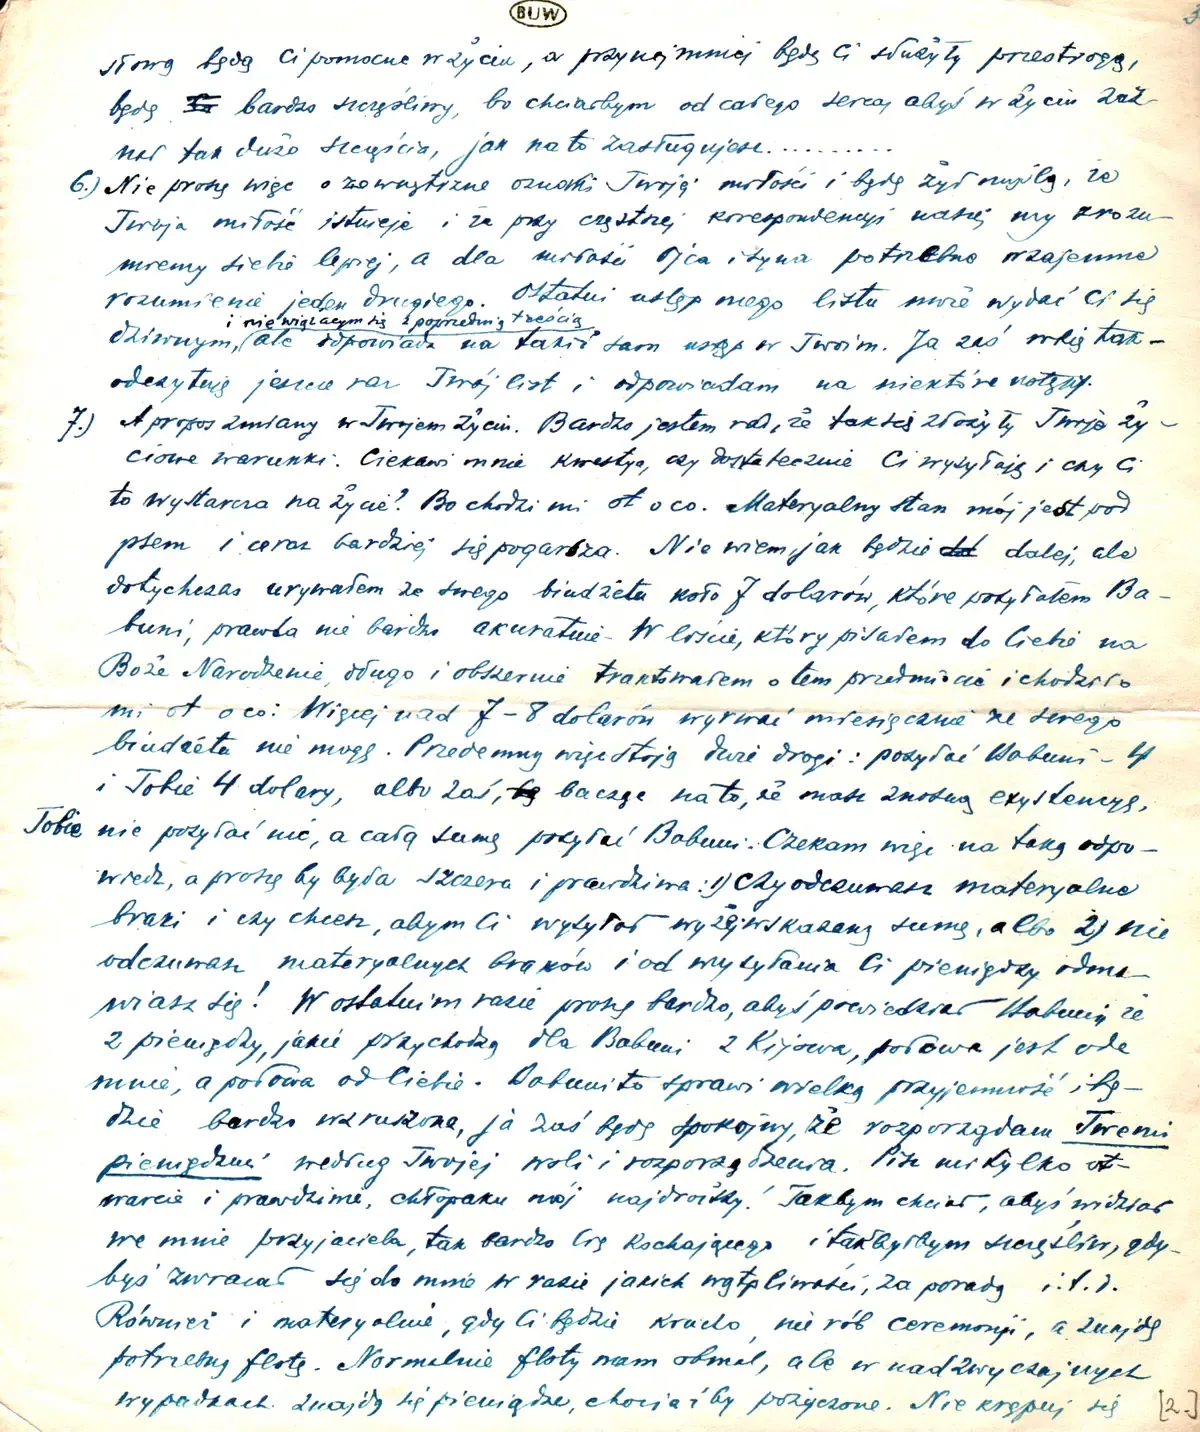 BUW
3
słowa będą Ci pomocne w życiu, a przynajmniej będą Ci służyły przestrogą,
będę bardzo szczęśliwy, bo chciałbym od całego serca, abyś w życiu zaz-
nał tak dużo szczęścia, jak na to zasługujesz..........
6.) Nie proszę więc o zewnętrzne oznaki Twojej miłości i będę żył myślą, że
Twoja miłość istnieje i że przy częstszej korespondencji naszej my zrozu-
miemy siebie lepiej, a dla miłości Ojca i syna potrzebne wzajemne
rozumienie jeden drugiego. Ostatni ustęp mego listu może wydać Ci się
i nie wiążącym się z poprzednią treścią
dziwnym, ale odpowiada na takiż sam ustęp w Twoim. Ja zaś tak-
odczytuję jeszcze raz Twój list i odpowiadam na niektóre ustępy.
7.) A propos zmiany w Twojem życiu. Bardzo jestem rad, że tak się złożyły Twoje ży-
ciowe warunki. Ciekawi mnie kwestya, czy dostatecznie Ci wysyłają i czy Ci
to wystarcza na życie? Bo chodzi mi ot o co. Materyalny stan mój jest pod
psem i coraz bardziej się pogarsza. Nie wiem, jak będzie dalej, ale
dotychczas urywałem ze swego biudżetu koło 7 dolarów, które posyłałem Ba-
buni, prawda nie bardzo akuratnie. W liście, który pisałem do Ciebie na
Boże Narodzenie, długo i obszernie traktowałem o tem przedmiocie i chodziło
mi ot o co: Więcej nad 7-8 dolarów wyrwać miesięcznie ze swego
biudżetu nie mogę. Przedemną więc stoją dwie drogi: posyłać Babuni - 4
i Tobie 4 dolary, albo zaś, bacząc na to, że masz znośną egzystencyę,
Tobie nie posyłać nic, a całą sumę posyłać Babuni. Czekam więc na taką odpo-
wiedź, a proszę by była szczera i prawdziwa: 1) Czy odczuwasz materyalne
braki i czy chcesz, abym Ci wysyłał wyżej wskazaną sumę, albo 2) nie
odczuwasz materyalnych braków i od wysyłania Ci pieniędzy odma-
wiasz się! W ostatnim razie proszę bardzo, abyś powiedział Babuni, że
z pieniędzy, jakie przychodzą dla Babuni z Kijowa, połowa jest ode
mnie, a połowa od Ciebie. Babuni to sprawi wielką przyjemność i bę-
dzie bardzo wzruszona, ja zaś będę spokojny, że rozporządzam Twemi
pieniędzmi według Twojej woli i rozporządzenia. Pisz mi tylko ot-
warcie i prawdziwie, chłopaku mój najdroższy! Takbym chciał, abyś widział
we mnie przyjaciela, tak bardzo Cię kochającego i takbyłbym szczęśliwy, gdy-
byś zwracał się do mnie w razie jakich wątpliwości, za poradą i.t.d.
Również i materyalnie, gdy Ci będzie krucho, nie rób ceremonji, a znajdę
potrzebną flotę. Normalnie floty mam obmal, ale w nadzwyczajnych
wypadkach znajdą się pieniądze, chociażby pożyczone. Nie krępuj się
[2.]